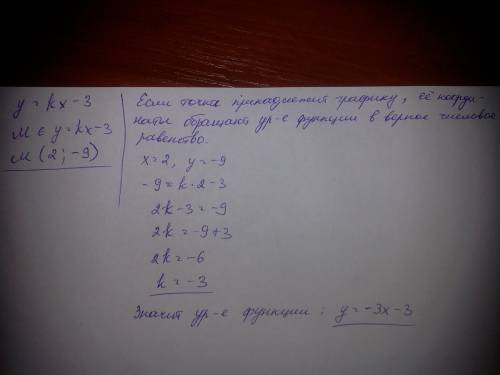 y = kx - 3
M ∈ y = kx - 3
M (2; -9)
Если точка принадлежит графику, её коорди-
наты обращают ур-е функции в верное числовое
равенство.
x = 2, y = -9
-9 = k · 2 - 3
2k - 3 = -9
2k = -9 + 3
2k = -6
k = -3
Значит ур-е функции: y = -3x - 3